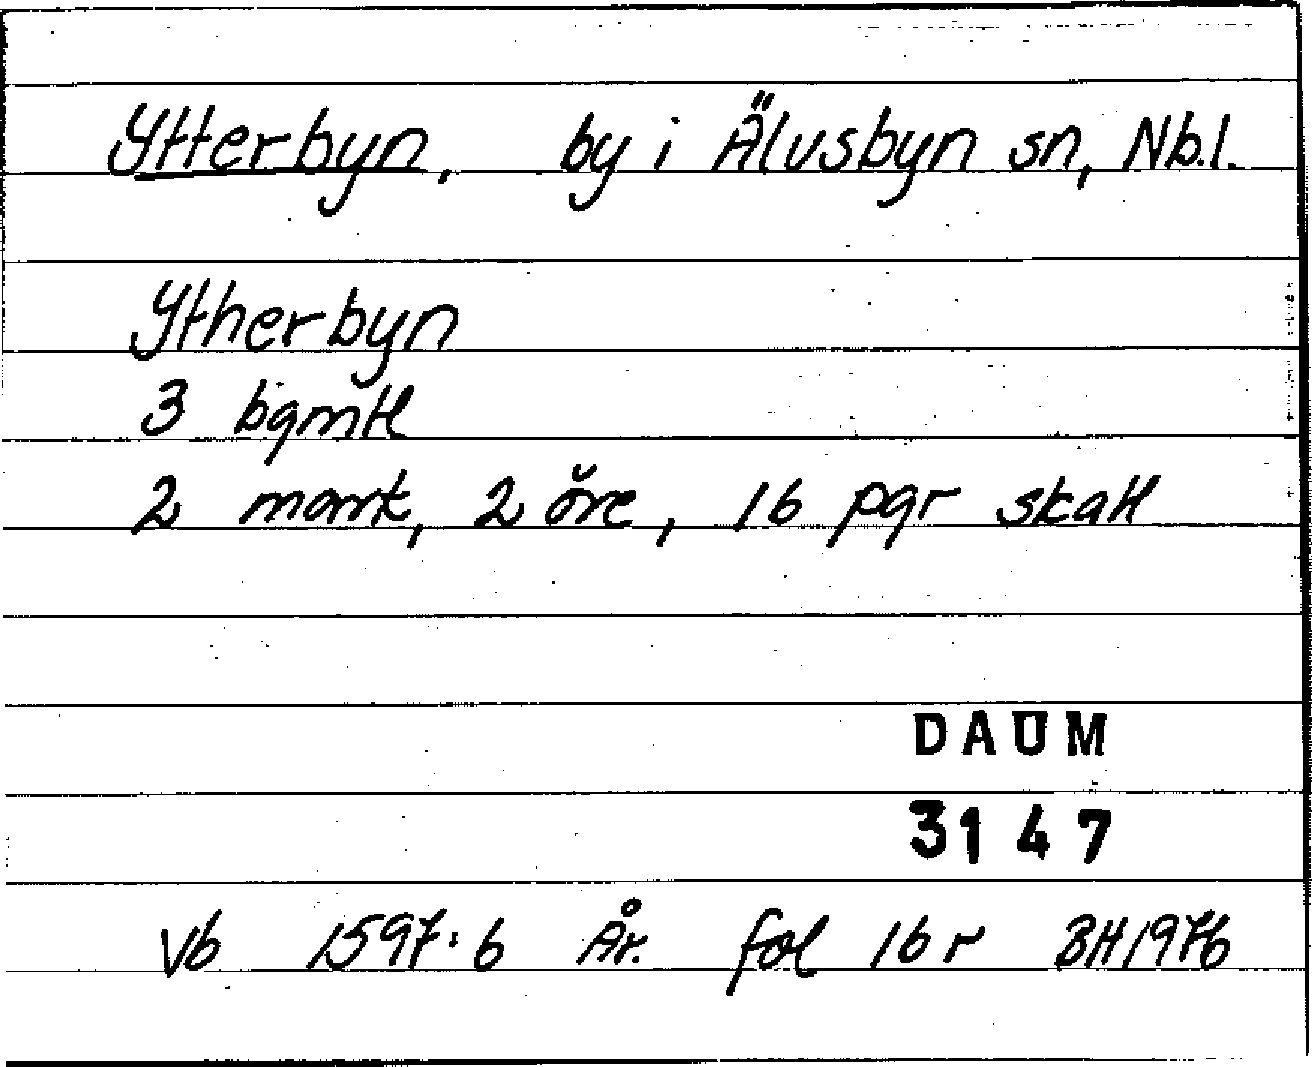 Ytterbyn, by i Älvsbyn sn, Nb.l.
Ytherbyn
3 bgmtl
2 mark, 2 öre, 16 pgr skatt
DAUM
3147
Vb 1597:6 År. fol 16 r BH1976